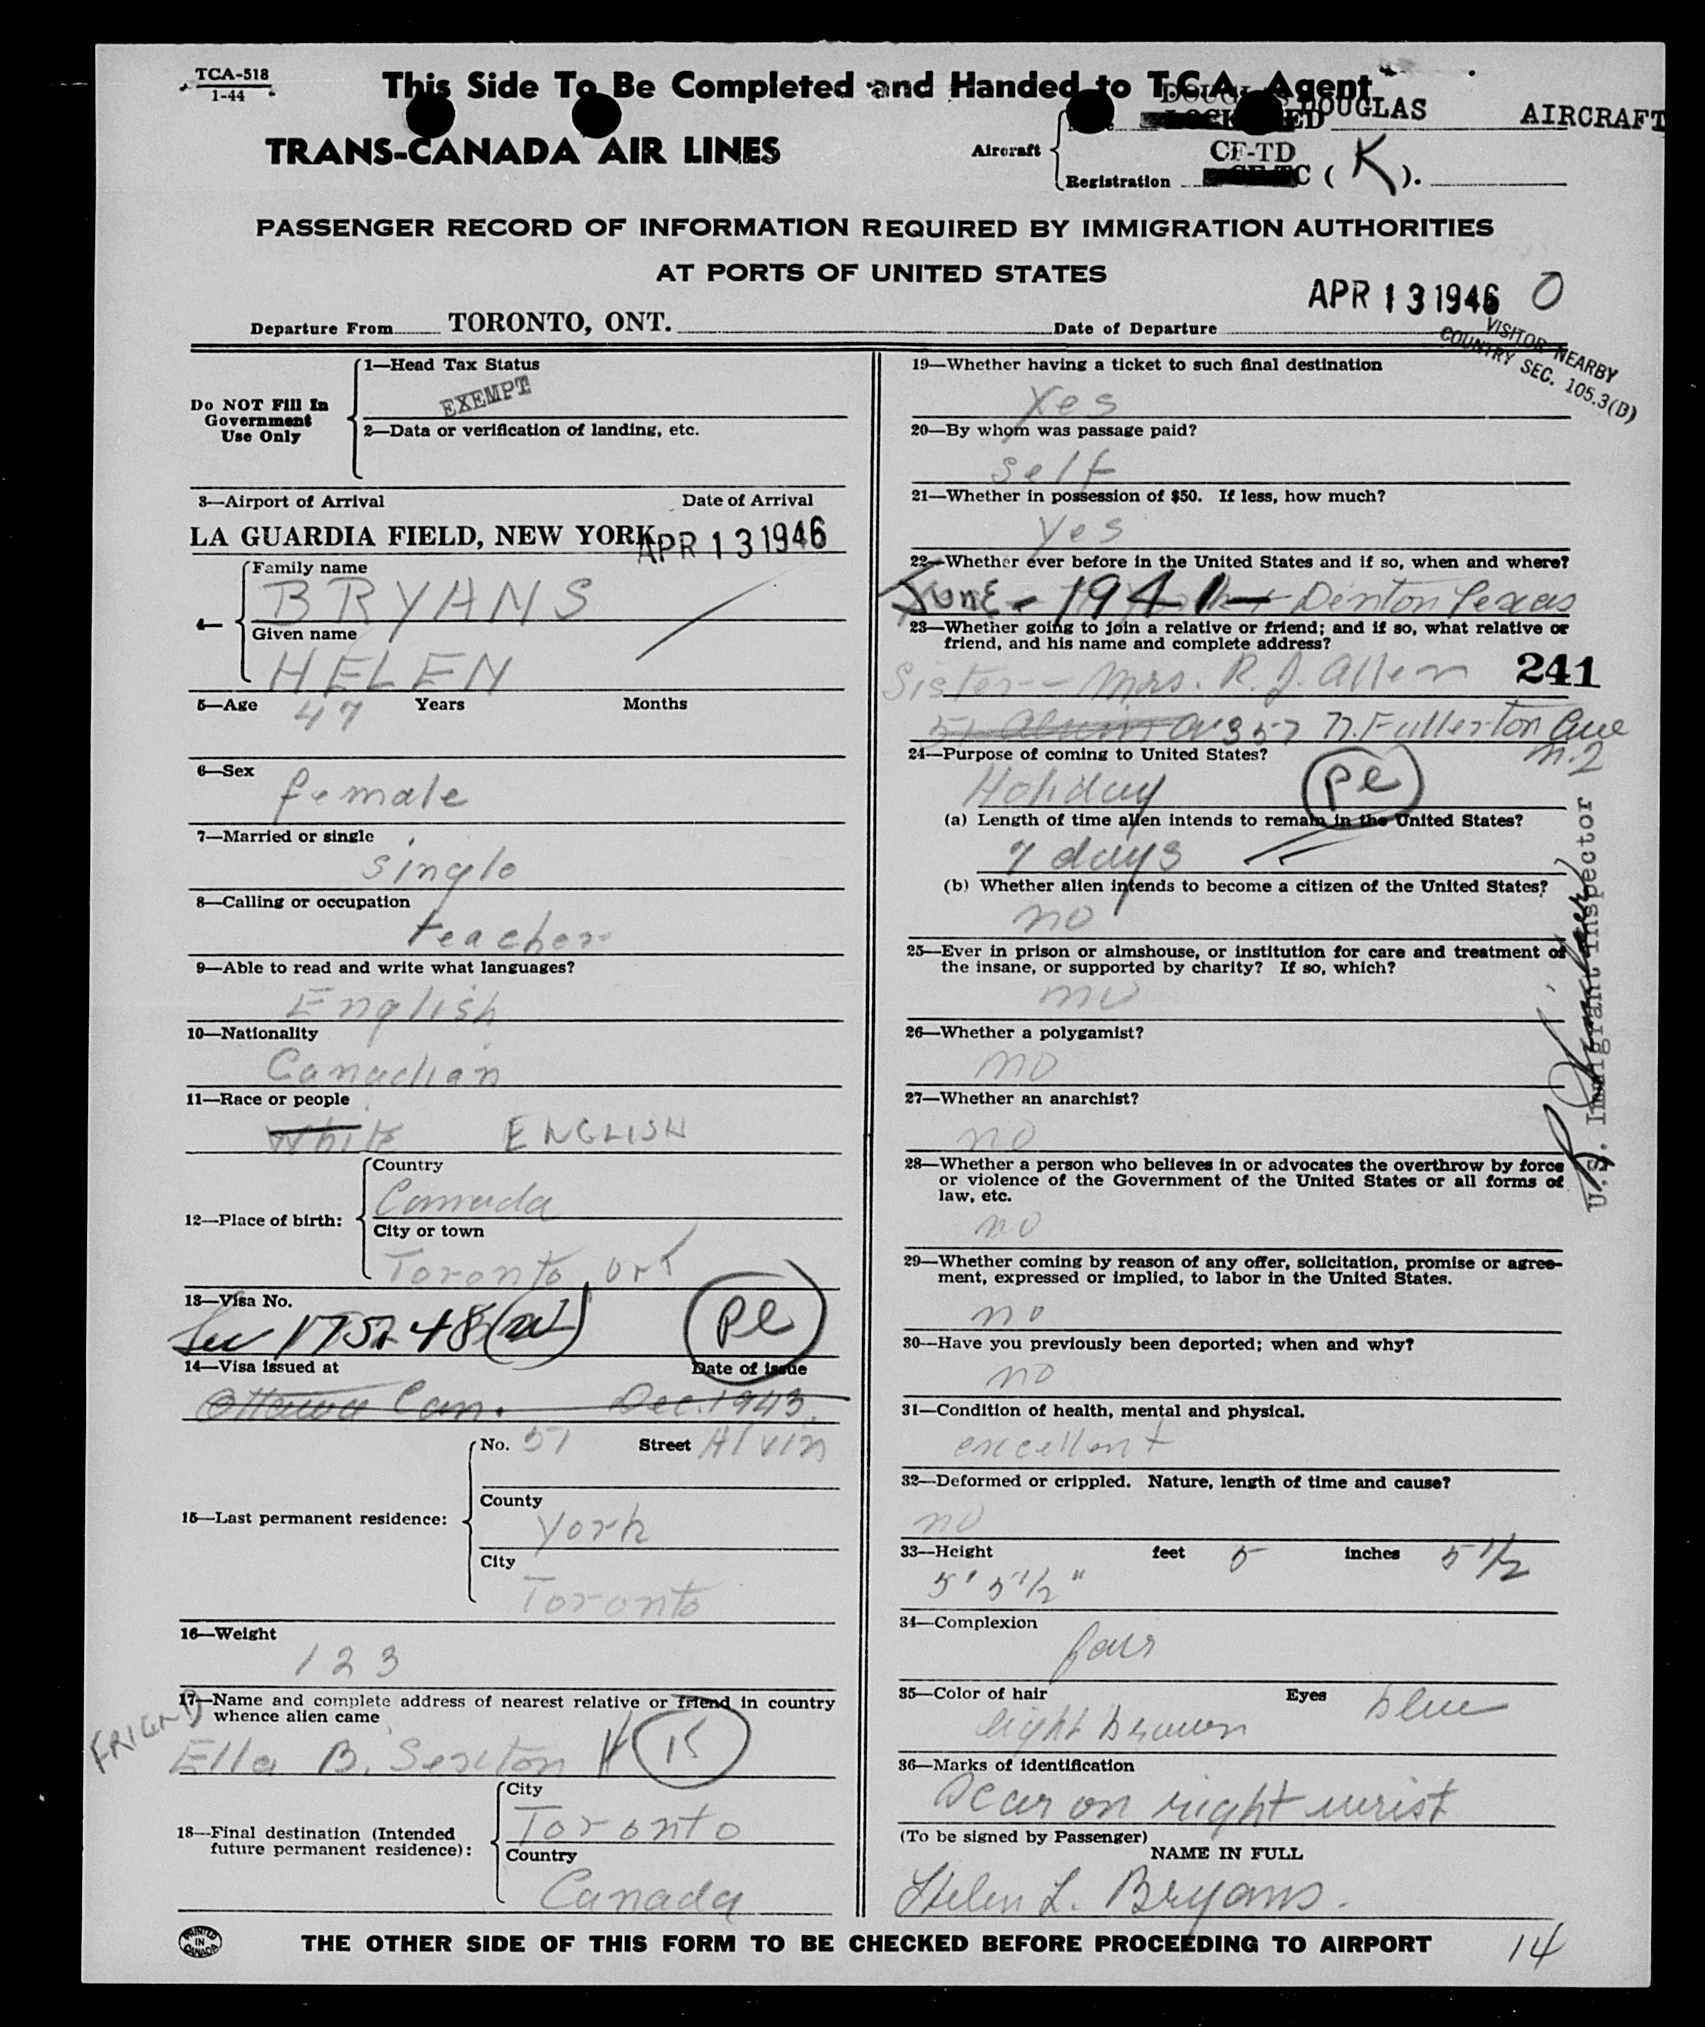 TCA-518
1-44
This Side To Be Completed and Handed to T.C.A. Agent
TRANS-CANADA AIR LINES
Aircraft
DOUGLAS DOUGLAS AIRCRAFT
CF-TD
Registration C ( K ).
PASSENGER RECORD OF INFORMATION REQUIRED BY IMMIGRATION AUTHORITIES
AT PORTS OF UNITED STATES
APR 13 1946 0
Departure From TORONTO, ONT. Date of Departure
VISITOR NEARBY
COUNTRY SEC. 105.3(B)
Do NOT Fill In
Government
Use Only
1—Head Tax Status
EXEMPT
2—Data or verification of landing, etc.
3—Airport of Arrival Date of Arrival
LA GUARDIA FIELD, NEW YORK APR 13 1946
4—
Family name
BRYANS
Given name
HELEN
5—Age 47 Years Months
6—Sex
female
7—Married or single
single
8—Calling or occupation
teacher
9—Able to read and write what languages?
English
10—Nationality
Canadian
11—Race or people
White ENGLISH
12—Place of birth:
Country
Canada
City or town
Toronto, Ont
13—Visa No.
175.248 pe
14—Visa issued at Date of issue
Ottawa Can. Dec. 1943
15—Last permanent residence:
No. 51 Street Alvin
County
York
City
Toronto
16—Weight
123
17—Name and complete address of nearest relative or friend in country
whence alien came
FRIEND
Ella B. Sexton
18—Final destination (Intended
future permanent residence):
City
Toronto
Country
Canada
19—Whether having a ticket to such final destination
Yes
20—By whom was passage paid?
self
21—Whether in possession of $50. If less, how much?
Yes
22—Whether ever before in the United States and if so, when and where?
June - 1941 - Denton Texas
23—Whether going to join a relative or friend; and if so, what relative or
friend, and his name and complete address?
Sister -- Mrs. R. J. Allen 241
57 N. Fullerton Ave
24—Purpose of coming to United States?
Holiday pe
(a) Length of time alien intends to remain in the United States?
7 days
(b) Whether alien intends to become a citizen of the United States?
no
25—Ever in prison or almshouse, or institution for care and treatment of
the insane, or supported by charity? If so, which?
no
26—Whether a polygamist?
no
27—Whether an anarchist?
no
28—Whether a person who believes in or advocates the overthrow by force
or violence of the Government of the United States or all forms of
law, etc.
no
29—Whether coming by reason of any offer, solicitation, promise or agree-
ment, expressed or implied, to labor in the United States.
no
30—Have you previously been deported; when and why?
no
31—Condition of health, mental and physical.
excellent
32—Deformed or crippled. Nature, length of time and cause?
no
33—Height feet 5 inches 5 1/2
5' 5 1/2"
34—Complexion
fair
35—Color of hair Eyes blue
light brown
36—Marks of identification
Scar on right wrist
(To be signed by Passenger)
NAME IN FULL
Helen L. Bryans.
U.S. Immigrant Inspector
PRINTED IN CANADA
THE OTHER SIDE OF THIS FORM TO BE CHECKED BEFORE PROCEEDING TO AIRPORT
14